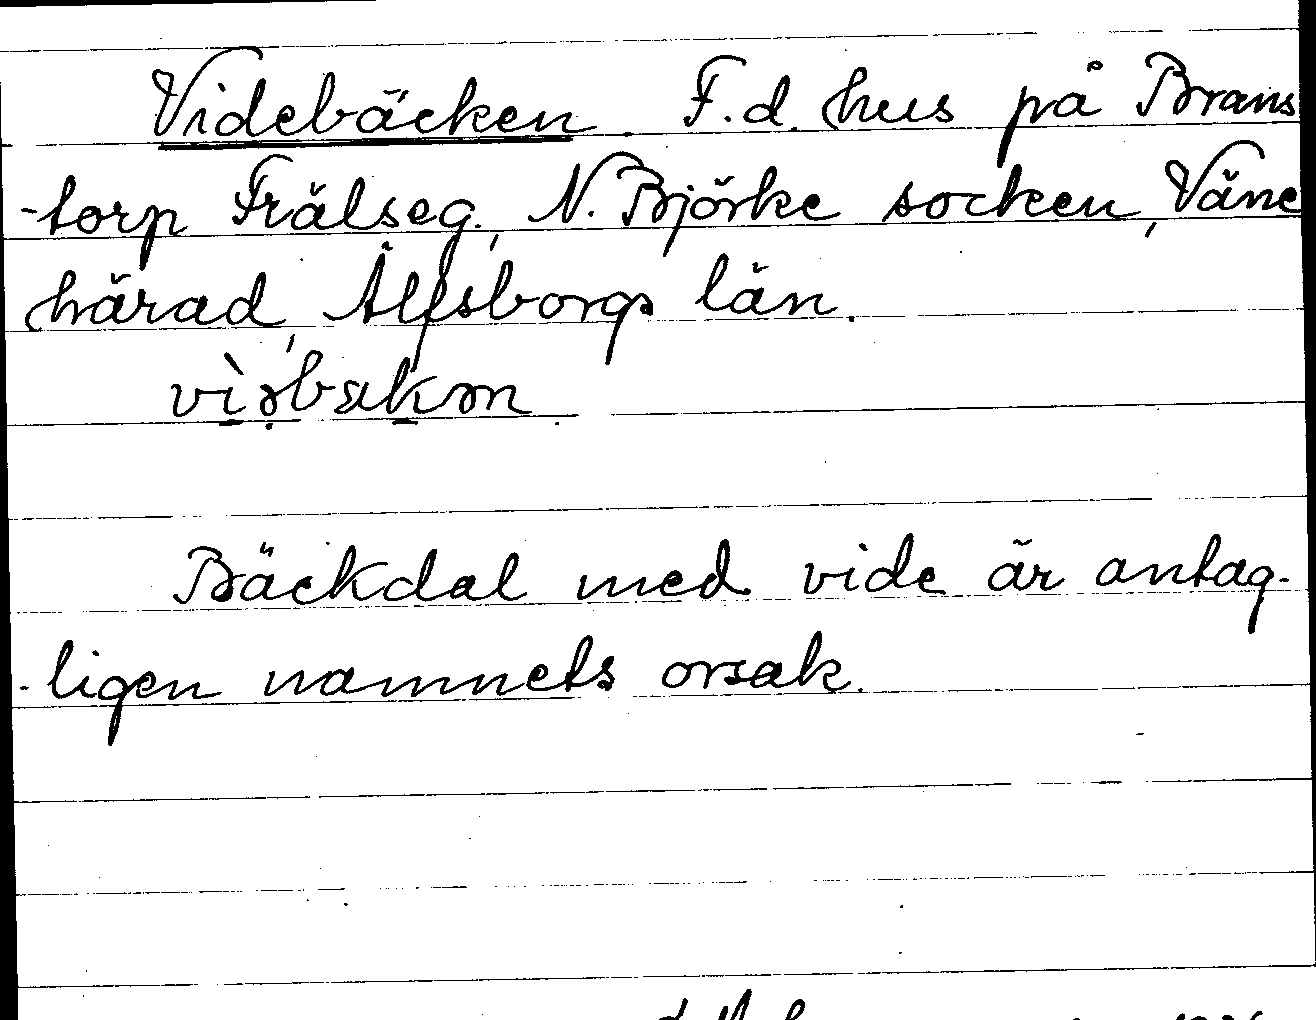 Videbäcken. F.d. hus på Brans
-torp Frälseg., N. Björke socken, Väne
härad, Älfsborgs län.
vìəbækən
Bäckdal med vide är antag-
-ligen namnets orsak.